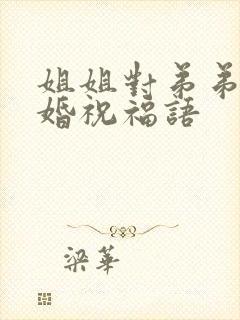 姐姐對弟弟
婚祝福語
梁華